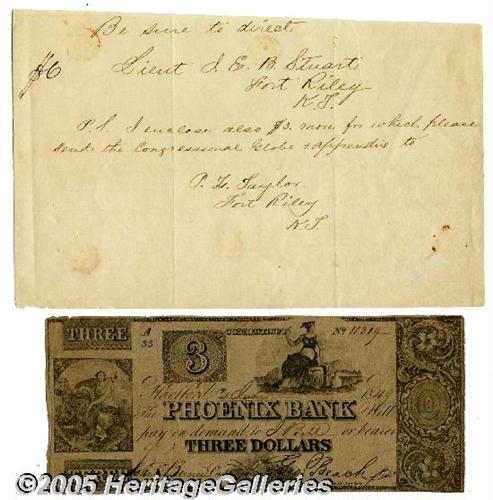 Be sure to direct
$6
Lieut J. E. B. Stuart
Fort Riley
K. T.
P. S. I enclose also $3. more for which please
send the Congressional Globe & appendix to
P. L. Taylor
Fort Riley
K. T.
THREE
A
33
CONNECTICUT
No 11219
3
Hartford
184
the PHOENIX BANK Will
pay on demand to
or bearer
THREE DOLLARS
THREE
Geo Beach
©2005 HeritageGalleries